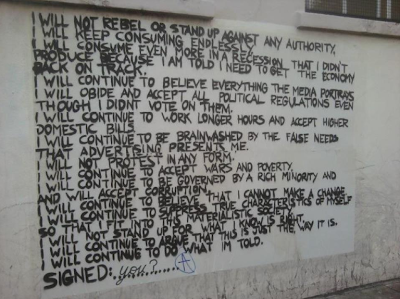 I WILL NOT REBEL OR STAND UP AGAINST ANY AUTHORITY.
I WILL KEEP CONSUMING ENDLESSLY.
I WILL CONSUME EVEN MORE IN A RECESSION, THAT I DIDN'T
PRODUCE BECAUSE I AM TOLD I NEED TO GET THE ECONOMY
BACK ON TRACK.
I WILL CONTINUE TO BELIEVE EVERYTHING THE MEDIA PORTRAYS
I WILL OBIDE AND ACCEPT ALL POLITICAL REGULATIONS EVEN
THOUGH I DIDNT VOTE ON THEM.
I WILL CONTINUE TO WORK LONGER HOURS AND ACCEPT HIGHER
DOMESTIC BILLS.
I WILL CONTINUE TO BE BRAINWASHED BY THE FALSE NEEDS
THAT ADVERTISING PRESENTS ME.
I WILL NOT PROTEST IN ANY FORM.
I WILL CONTINUE TO ACCEPT WARS AND POVERTY.
I WILL CONTINUE TO BE GOVERNED BY A RICH MINORITY AND
AND ACCEPT CORRUPTION.
I WILL CONTINUE TO BELIEVE THAT I CANNOT MAKE A CHANGE
I WILL CONTINUE TO SUPPRESS TRUE CHARACTERISTICS OF MYSELF
SO THAT I FIT INTO MATERIALISTIC SOCIETY.
I WILL NOT STAND UP FOR WHAT I KNOW IS RIGHT.
I WILL CONTINUE TO ARGUE THAT THIS IS JUST THE WAY IT IS.
I WILL CONTINUE TO DO WHAT IM TOLD.
SIGNED: you?
A